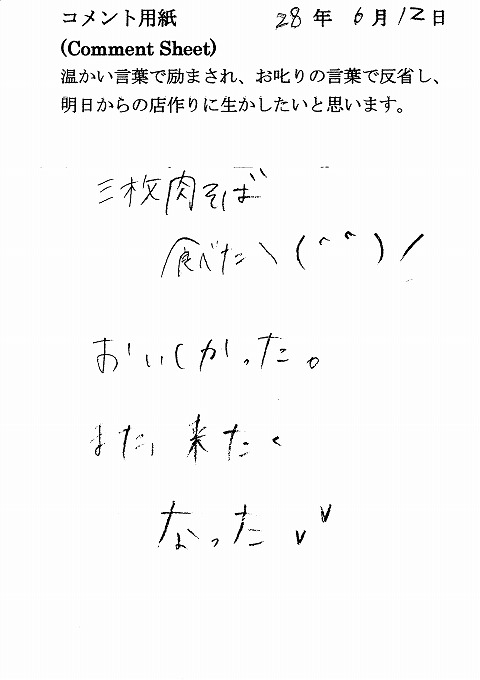 コメント用紙 28年 6月12日
(Comment Sheet)
温かい言葉で励まされ、お叱りの言葉で反省し、
明日からの店作りに生かしたいと思います。
三枚肉そば
食べた＼(^^)／
おいしかった。
また、来たく
なった vv